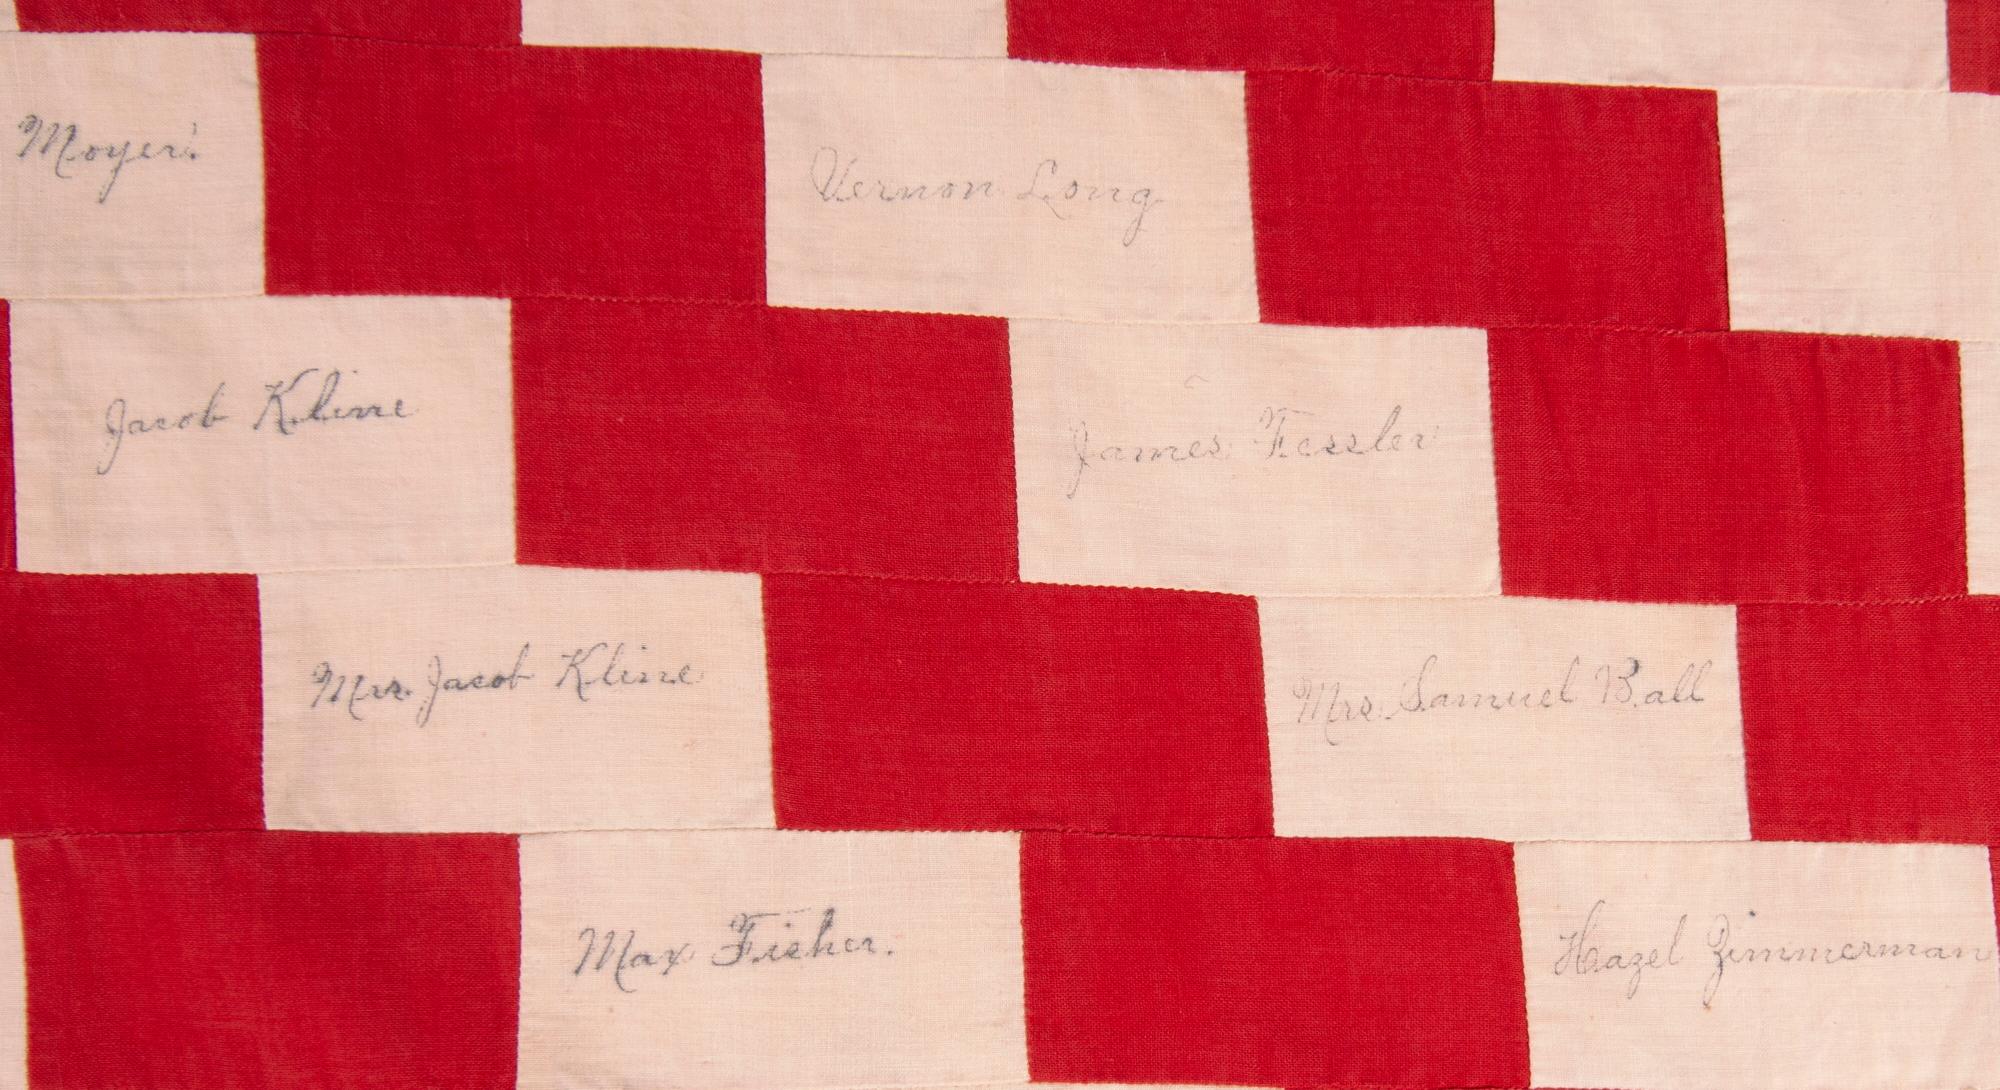 Moyer.
Vernon Long
Jacob Kline
James Fessler
Mrs. Jacob Kline
Mrs. Samuel Ball
Max Fisher.
Hazel Zimmerman